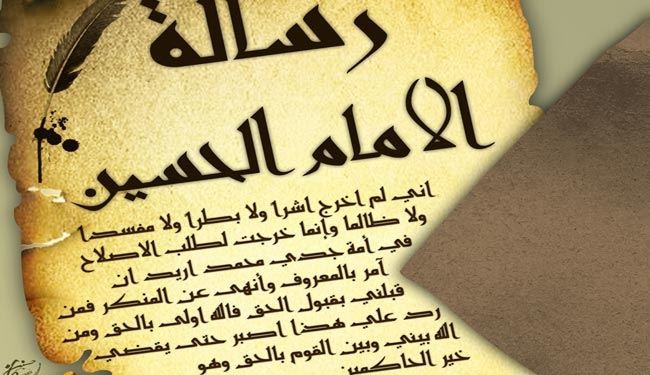 رسالة
الامام الحسين
اني لم اخرج اشرا ولا بطرا ولا مفسدا
ولا ظالما وإنما خرجت لطلب الاصلاح
في امة جدي محمد اريد ان
آمر بالمعروف وأنهى عن المنكر فمن
قبلني بقبول الحق فالله اولى بالحق ومن
رد علي هذا اصبر حتى يقضي
الله بيني وبين القوم بالحق وهو
خير الحاكمين